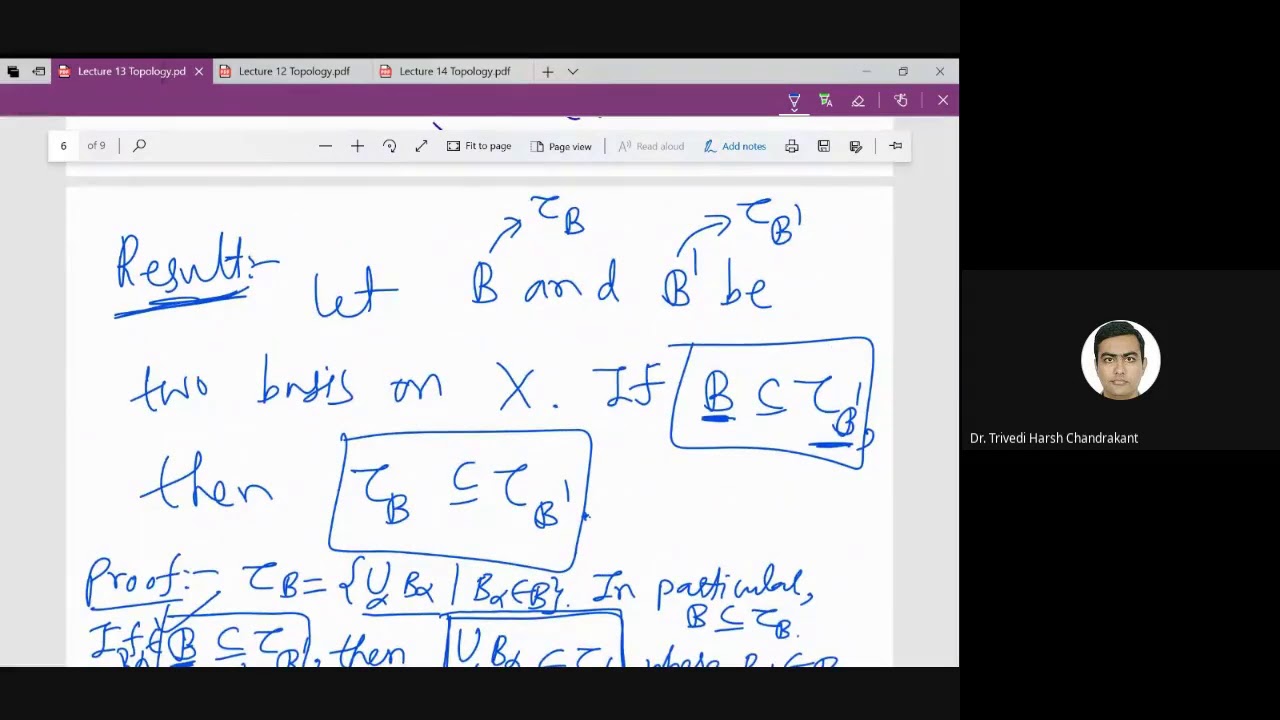 Lecture 13 Topology.pd Lecture 12 Topology.pdf Lecture 14 Topology.pdf
6 of 9 Fit to page Page view Read aloud Add notes
τ_B τ_B'
Result:- Let B and B' be
two basis on X. If B ⊆ τ_B',
then τ_B ⊆ τ_B'.
Proof:- τ_B = {∪_α B_α | B_α ∈ B}. In particular,
B ⊆ τ_B.
If B ⊆ τ_B', then ∪ B_α
Dr. Trivedi Harsh Chandrakant